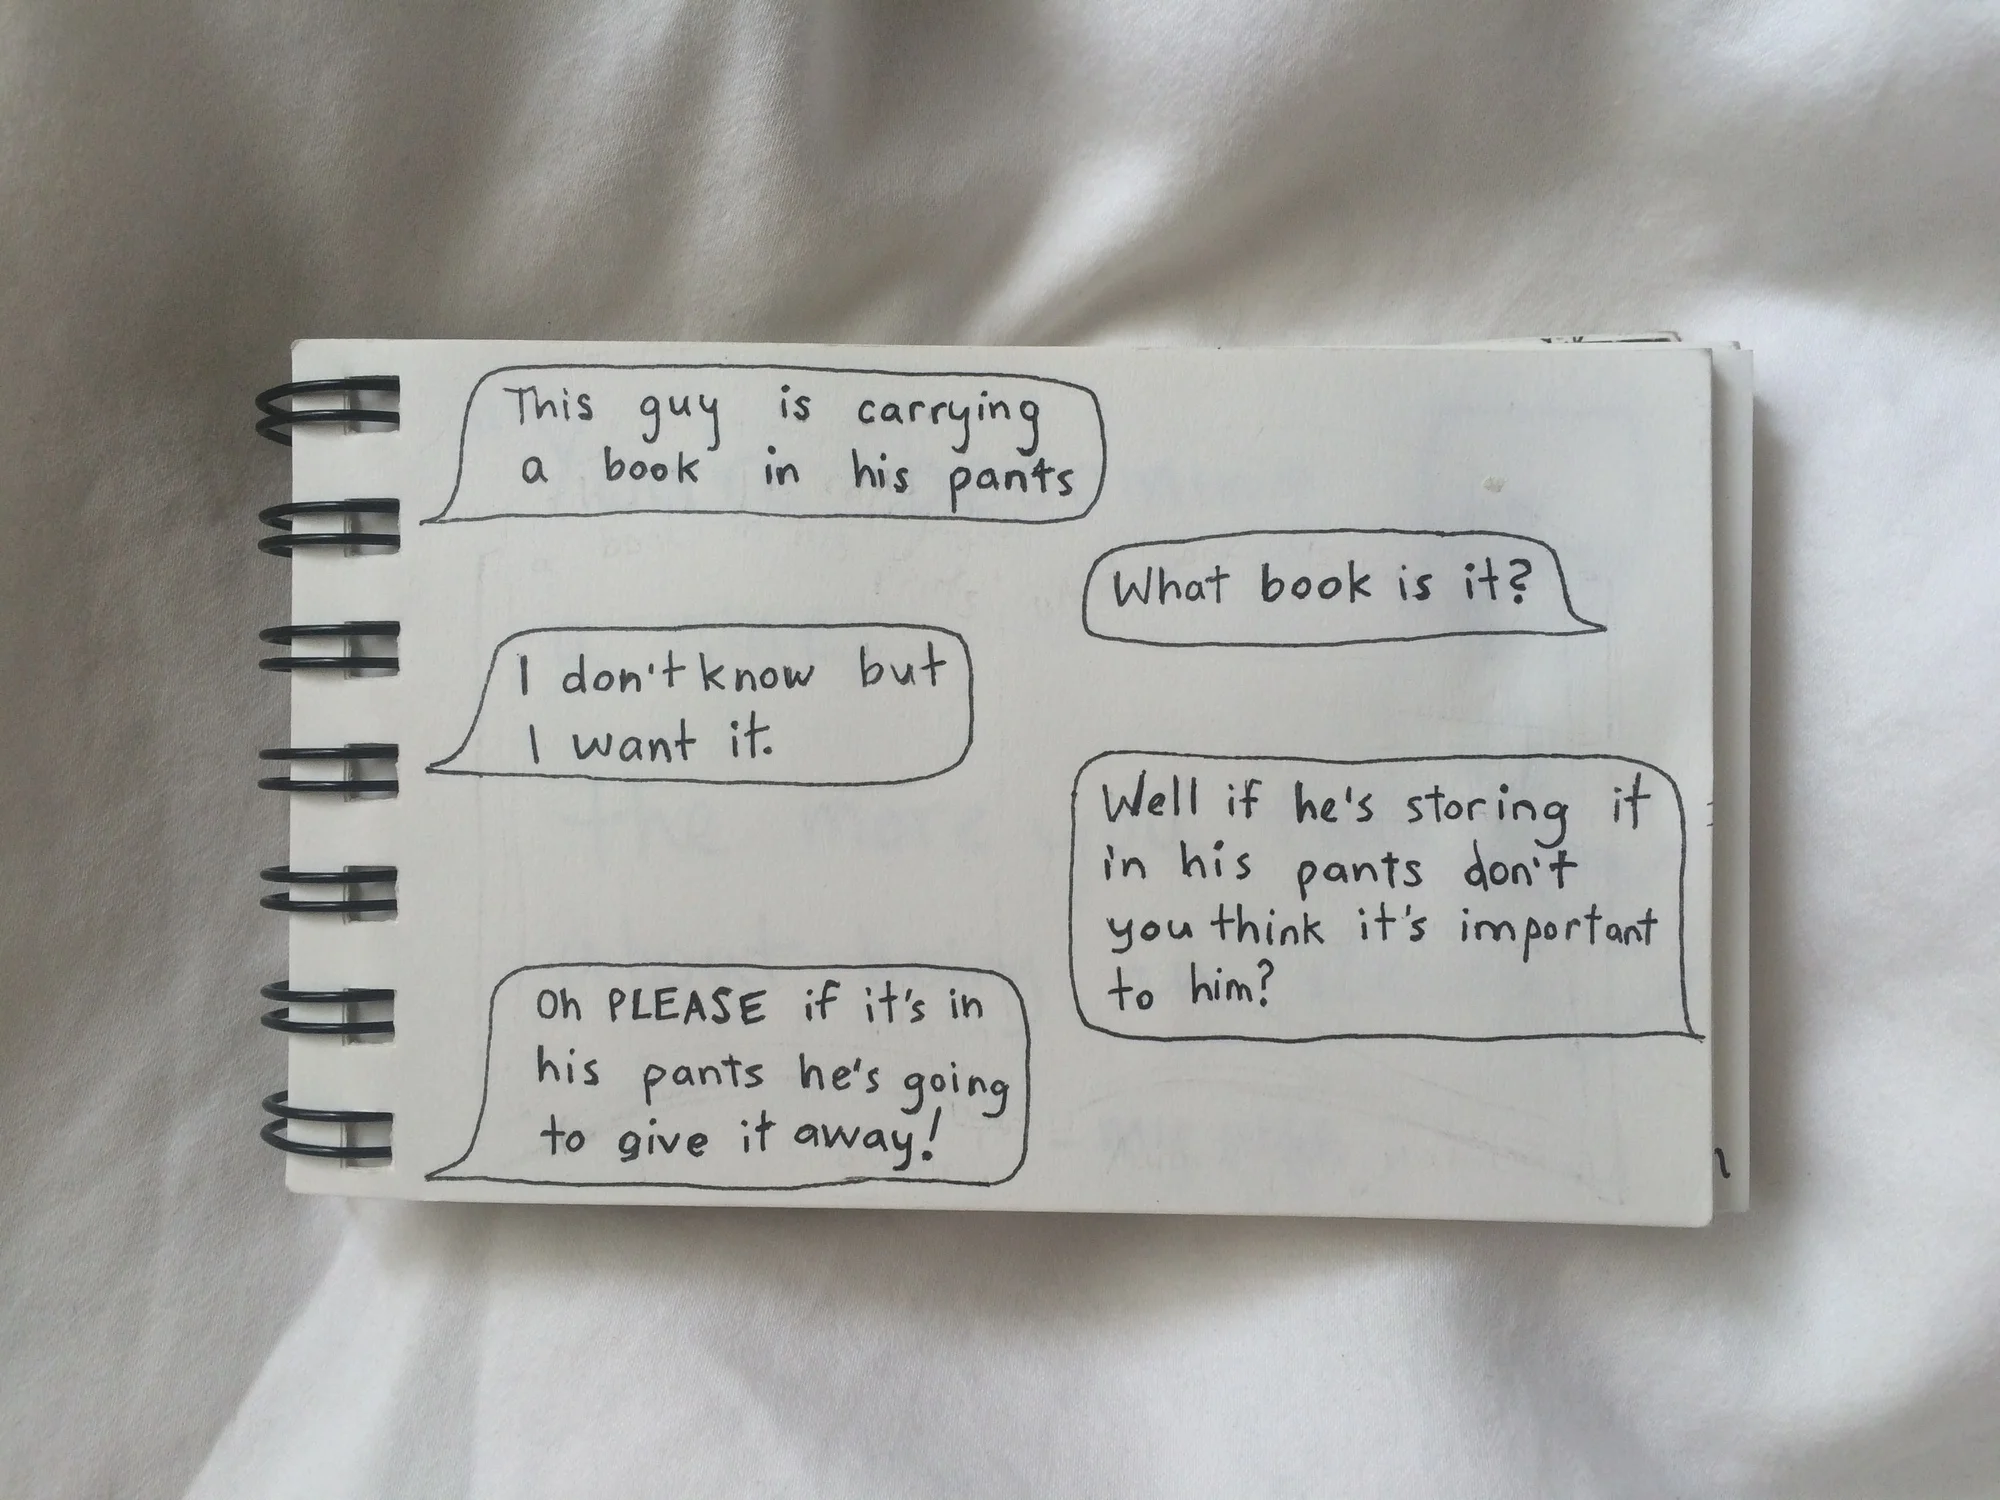 This guy is carrying
a book in his pants
What book is it?
I don't know but
I want it.
Well if he's storing it
in his pants don't
you think it's important
to him?
Oh PLEASE if it's in
his pants he's going
to give it away!